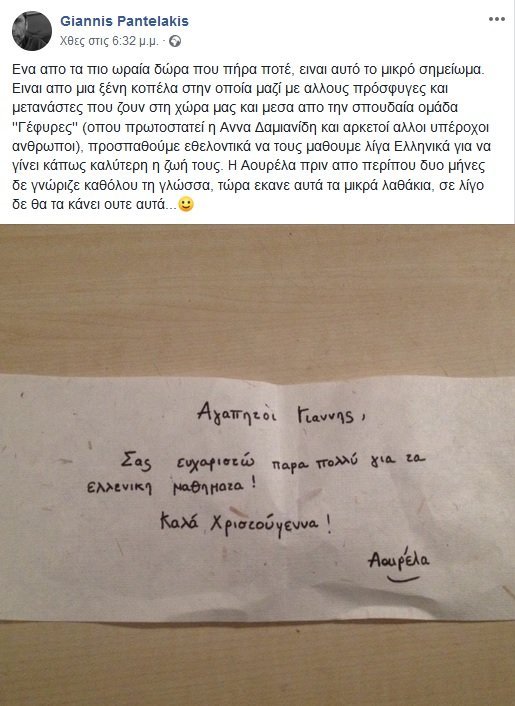 Giannis Pantelakis
Χθες στις 6:32 μ.μ. ·
Ενα απο τα πιο ωραία δώρα που πήρα ποτέ, ειναι αυτό το μικρό σημείωμα.
Ειναι απο μια ξένη κοπέλα στην οποία μαζί με αλλους πρόσφυγες και
μετανάστες που ζουν στη χώρα μας και μεσα απο την σπουδαία ομάδα
"Γέφυρες" (οπου πρωτοστατεί η Αννα Δαμιανίδη και αρκετοί αλλοι υπέροχοι
ανθρωποι), προσπαθούμε εθελοντικά να τους μαθουμε λίγα Ελληνικά για να
γίνει κάπως καλύτερη η ζωή τους. Η Αουρέλα πριν απο περίπου δυο μήνες
δε γνώριζε καθόλου τη γλώσσα, τώρα εκανε αυτά τα μικρά λαθάκια, σε λίγο
δε θα τα κάνει ουτε αυτά...🙂
Αγαπητοί Γιαννης,
Σας ευχαριστώ παρα πολλύ για τα
ελλενικη μαθηματα!
Καλά Χριστούγεννα!
Αουρέλα